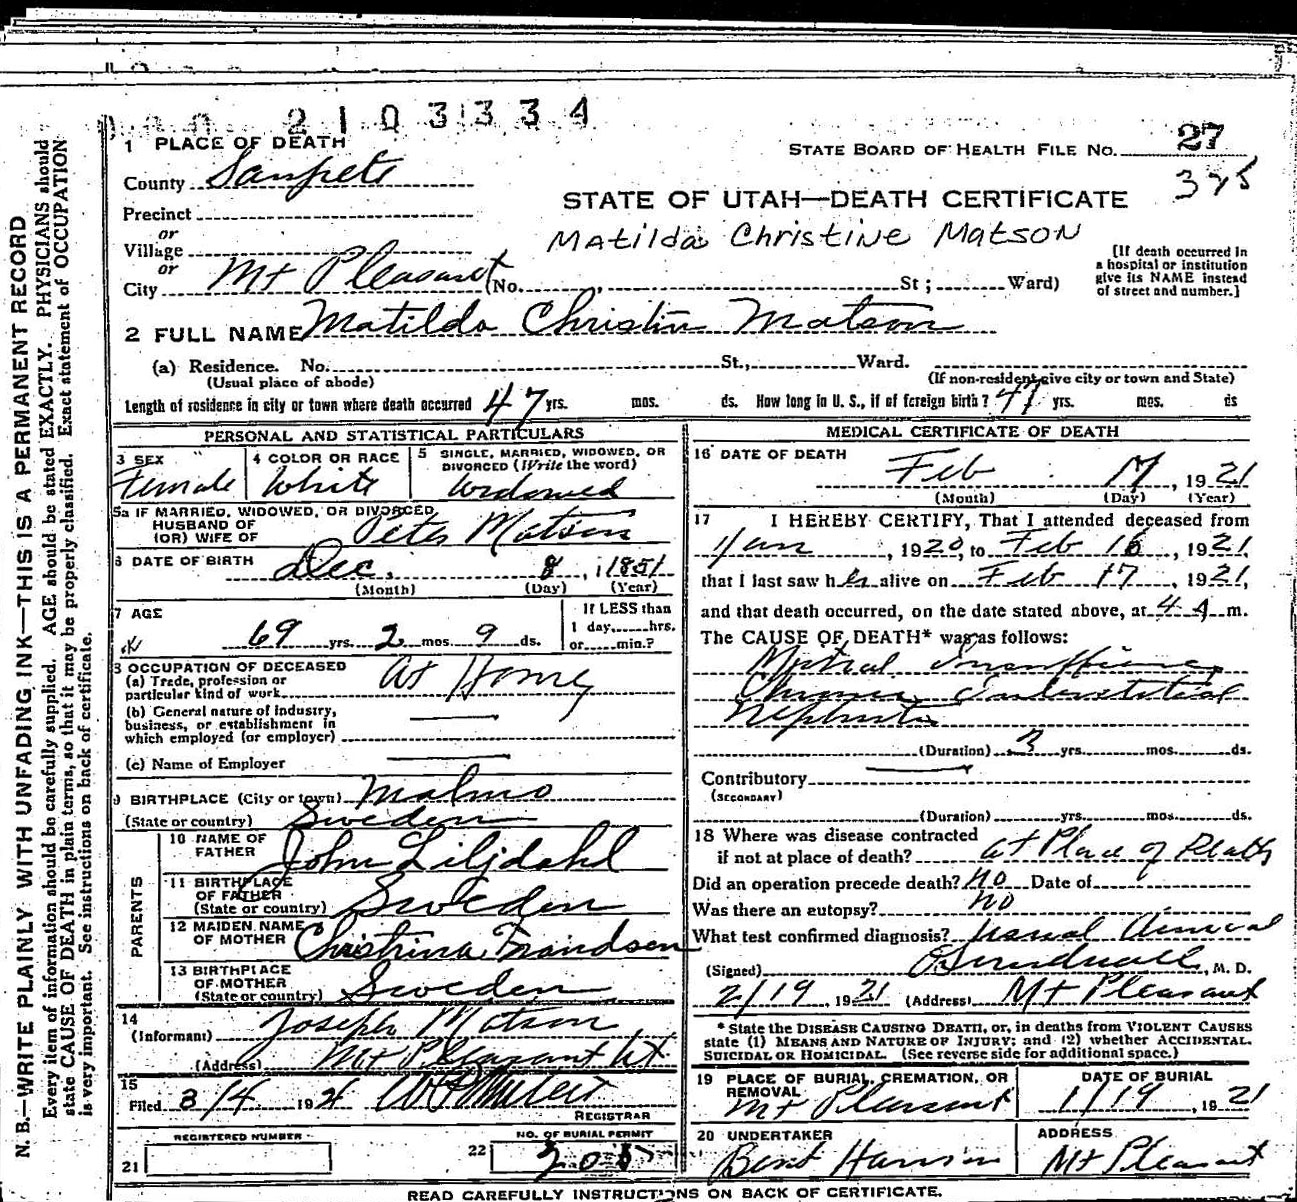 2103334
1 PLACE OF DEATH
STATE BOARD OF HEALTH FILE NO. 27
County Sanpete
325
STATE OF UTAH—DEATH CERTIFICATE
Precinct
or
Village
Matilda Christine Matson
[If death occurred in a hospital or institution give its NAME instead of street and number.]
or
City Mt Pleasant (No. , St ; Ward)
2 FULL NAME Matilda Christin Matson
(a) Residence. No. St., Ward.
(Usual place of abode) (If non-resident give city or town and State)
Length of residence in city or town where death occurred 47 yrs. mos. ds. How long in U. S., if of foreign birth? 47 yrs. mos. ds
PERSONAL AND STATISTICAL PARTICULARS
3 SEX Female
4 COLOR OR RACE White
5 SINGLE, MARRIED, WIDOWED, OR DIVORCED (Write the word) Widowed
5a IF MARRIED, WIDOWED, OR DIVORCED
HUSBAND OF
(OR) WIFE OF Peter Matson
6 DATE OF BIRTH Dec. 8, 1851
(Month) (Day) (Year)
7 AGE 69 yrs. 2 mos. 9 ds.
If LESS than 1 day, hrs. or min.?
8 OCCUPATION OF DECEASED
(a) Trade, profession or particular kind of work At Home
(b) General nature of industry, business, or establishment in which employed (or employer)
(c) Name of Employer
9 BIRTHPLACE (City or town) Malmo
(State or country) Sweden
PARENTS
10 NAME OF FATHER John Liljdahl
11 BIRTHPLACE OF FATHER (State or country) Sweden
12 MAIDEN NAME OF MOTHER Christina Frandsen
13 BIRTHPLACE OF MOTHER (State or country) Sweden
14 (Informant) Joseph Matson
(Address) Mt Pleasant Ut
15 Filed 3/4 1921
REGISTRAR
REGISTERED NUMBER
21
NO. OF BURIAL PERMIT
22 205
MEDICAL CERTIFICATE OF DEATH
16 DATE OF DEATH Feb 17, 1921
(Month) (Day) (Year)
17 I HEREBY CERTIFY, That I attended deceased from
1/Jan, 1920, to Feb 16, 1921,
that I last saw her alive on Feb 17, 1921,
and that death occurred, on the date stated above, at 4 A m.
The CAUSE OF DEATH* was as follows:
Mitral Insufficiency
Chronic Interstitial
Nephritis
(Duration) 3 yrs. mos. ds.
Contributory
(SECONDARY)
(Duration) yrs. mos. ds.
18 Where was disease contracted
if not at place of death? at Place of Death
Did an operation precede death? No Date of
Was there an autopsy? No
What test confirmed diagnosis? usual clinical
(Signed) Sundwall, M. D.
2/19, 1921 (Address) Mt Pleasant
* State the DISEASE CAUSING DEATH, or, in deaths from VIOLENT CAUSES
state (1) MEANS AND NATURE OF INJURY; and (2) whether ACCIDENTAL,
SUICIDAL OR HOMICIDAL. (See reverse side for additional space.)
19 PLACE OF BURIAL, CREMATION, OR REMOVAL Mt Pleasant
DATE OF BURIAL 1/19, 1921
20 UNDERTAKER Bent Hansen
ADDRESS Mt Pleasant
READ CAREFULLY INSTRUCTIONS ON BACK OF CERTIFICATE.
N. B.—WRITE PLAINLY WITH UNFADING INK—THIS IS A PERMANENT RECORD
Every item of information should be carefully supplied. AGE should be stated EXACTLY. PHYSICIANS should
state CAUSE OF DEATH in plain terms, so that it may be properly classified. Exact statement of OCCUPATION
is very important. See instructions on back of certificate.